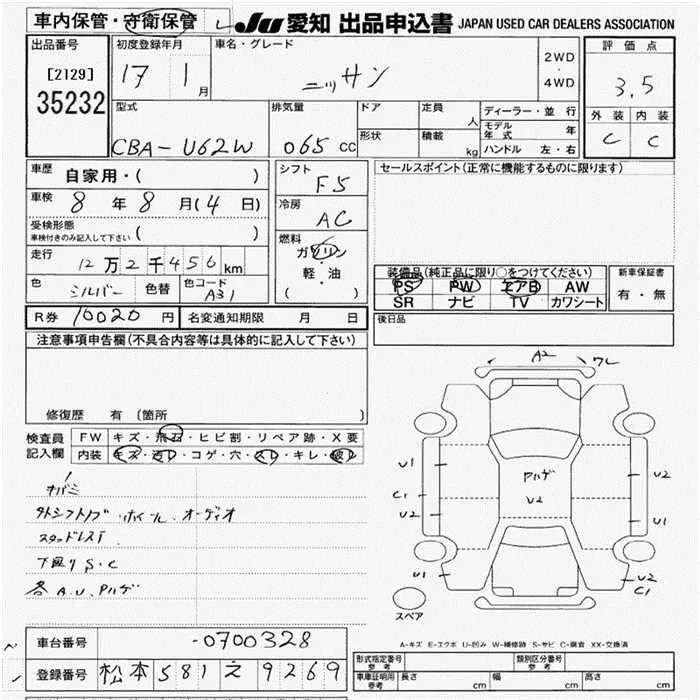 車内保管・守衛保管
JU 愛知 出品申込書 JAPAN USED CAR DEALERS ASSOCIATION
出品番号
[2129]
35232
初度登録年月
17 1月
車名・グレード
ニッサン
2WD
・
4WD
評価点
3.5
外装 内装
C C
型式
CBA-U62W
排気量
065 cc
ドア
形状
定員 人
積載 kg
ディーラー・並行
モデル年式 年
ハンドル 左・右
車歴 自家用・( )
車検 8年8月(4日)
受検形態
車検付きのみ記入して下さい ( )
走行 12万2千456km
色 シルバー 色替 色コード A31
シフト F5
冷房 AC
燃料 ガソリン
・
軽・油
( )
セールスポイント(正常に機能するものに限ります)
装備品(純正品に限り○をつけてください)
PS PW エアB AW
SR ナビ TV カワシート
新車保証書
有・無
R券 10020円 名変通知期限 月 日
後日品
注意事項申告欄(不具合内容等は具体的に記入して下さい)
修復歴 有 〔箇所
検査員
記入欄
FW キズ・飛石・ヒビ割・リペア跡・X要
内装 キズ・汚レ・コゲ・穴・スレ・キレ・破レ
スタッドレス
下廻りS・C
各A.U.ハゲ
A2 ワレ
U1
C1
U2
U1
ハゲ
U2
U2
U1
U2
C1
スペア
A-キズ E-エクボ U-凹み W-補修跡 S-サビ C-腐食 XX-交換済
車台番号 -0700328
登録番号 松本581え9269
形式指定番号
参考
類別区分番号
参考
車庫証明用
参考
長さ cm 幅 cm 高さ cm